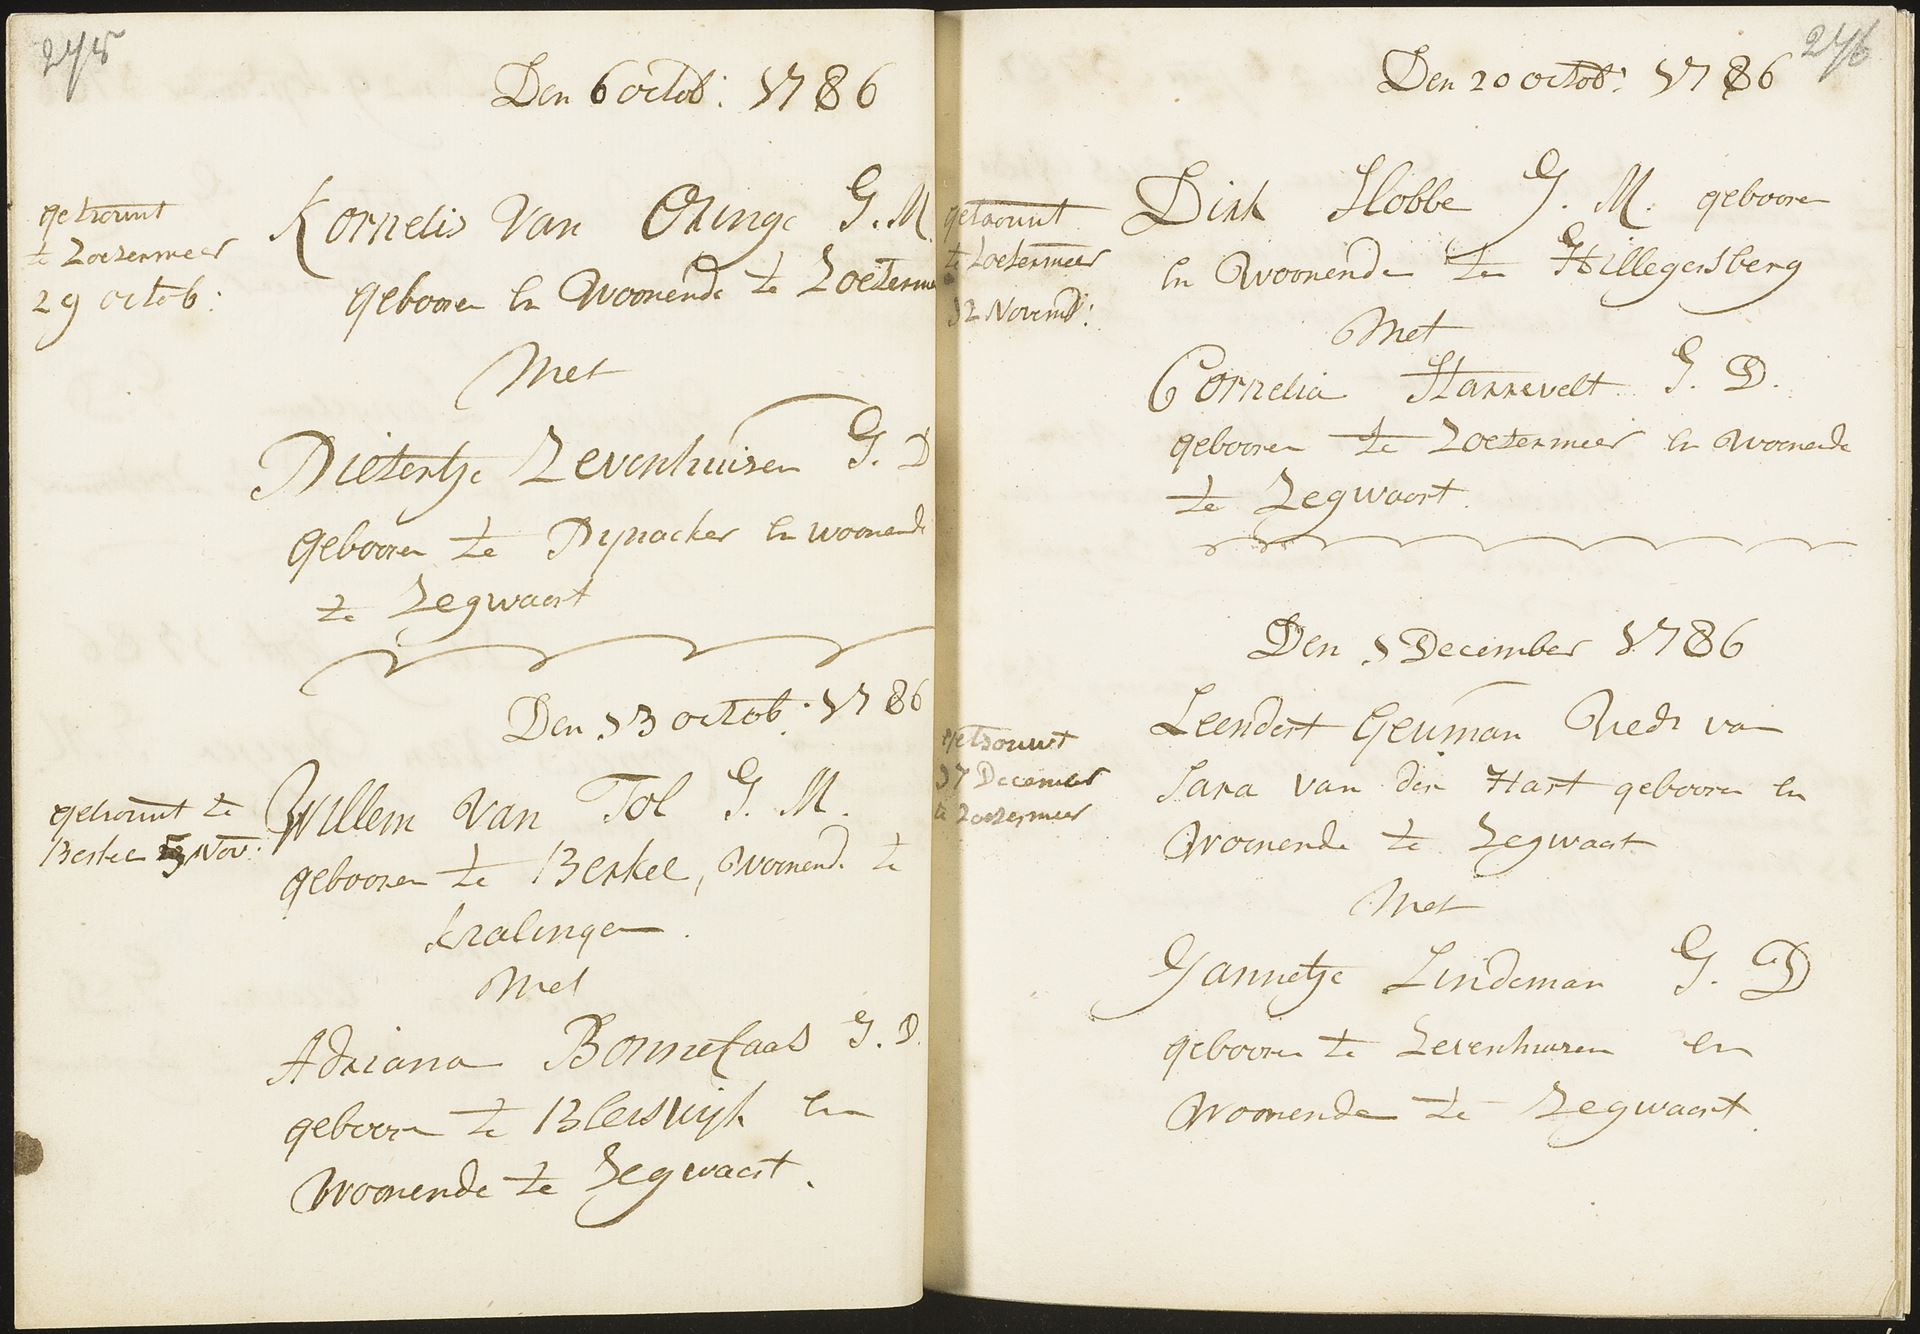 275
Den 6 octob: 1786
getrouwt
te Zoetermeer
29 octob:
Kornelis van Oringe G. M.
geboren en Woonende te Zoeterme
Met
Pietertje Zevenhuisen G. D
gebooren te Pynacker en woonende
te Zegwaart
Den 13 octob: 1786
getrouwt te
Berkel Nov:
Willem van Tol G. M.
gebooren te Berkel, Woonende te
Kralingen.
Met
Adriana Bonnefaas G. D.
gebooren te Bleiswijk en
Woonende te Zegwaart.
276
Den 20 octob: 1786
getrouwt
te Zoetermeer
12 Novemb:
Dirk Slobbe G. M. gebooren
en Woonende te Hillegersberg
Met
Cornelia Starrevelt G. D.
gebooren te Zoetermeer en woonende
te Zegwaart.
Den 1 December 1786
getrouwt
17 December
te Zoetermeer
Leendert Geuman Wedr van
Sara van der Hart gebooren en
Woonende te Zegwaart
Met
Jannetje Lindeman G. D
gebooren te Zevenhuisen en
Woonende te Zegwaart.